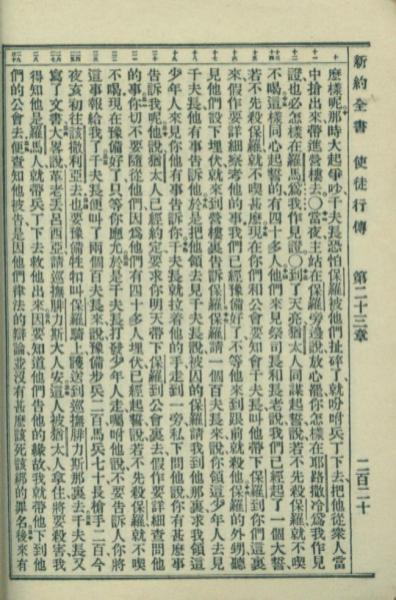 新約全書 使徒行傳 第二十三章 二百二十
麽樣呢那時大起爭吵千夫長恐怕保羅被他們扯碎了就吩咐兵丁下去把他從衆人當
中搶出來帶進營樓去〇當夜主站在保羅旁邊說放心罷你怎樣在耶路撒冷爲我作見
證也必怎樣在羅馬爲我作見證〇到了天亮猶太人同謀起誓說若不先殺保羅就不喫
不喝這樣同心起誓的有四十多人他們來見祭司長和長老說我們已經起了一個大誓
若不先殺保羅就不喫甚麽現在你們和公會要知會千夫長叫他帶下保羅到你們這裏
來假作要詳細察考他的事我們已經豫備好了不等他來到跟前就殺他保羅的外甥聽
見他們設下埋伏就來到營樓裏告訴保羅保羅請一個百夫長來說你領這少年人去見
千夫長他有事告訴他於是把他領去見千夫長說被囚的保羅請我到他那裏求我領這
少年人來見你他有事告訴你千夫長就拉着他的手走到一旁私下問他說你有甚麽事
告訴我呢他說猶太人已經約定要求你明天帶下保羅到公會裏去假作要詳細查問他
的事你切不要隨從他們因爲他們有四十多人埋伏已經起誓說若不先殺保羅就不喫
不喝現在豫備好了只等你應允於是千夫長打發少年人走囑咐他說不要告訴人你將
這事報給我了千夫長便叫了兩個百夫長來說豫備步兵二百馬兵七十長槍手二百今
夜亥初往該撒利亞去也要豫備牲口叫保羅騎上護送到巡撫腓力斯那裏去千夫長又
寫了文書大畧說革老丟呂西亞請巡撫腓力斯大人安這人被猶太人拿住將要殺害我
得知他是羅馬人就帶兵丁下去救他出來因要知道他們告他的緣故我就帶他下到他
們的公會去便查知他被告是因他們律法的辯論並沒有甚麽該死該綁的罪名後來有